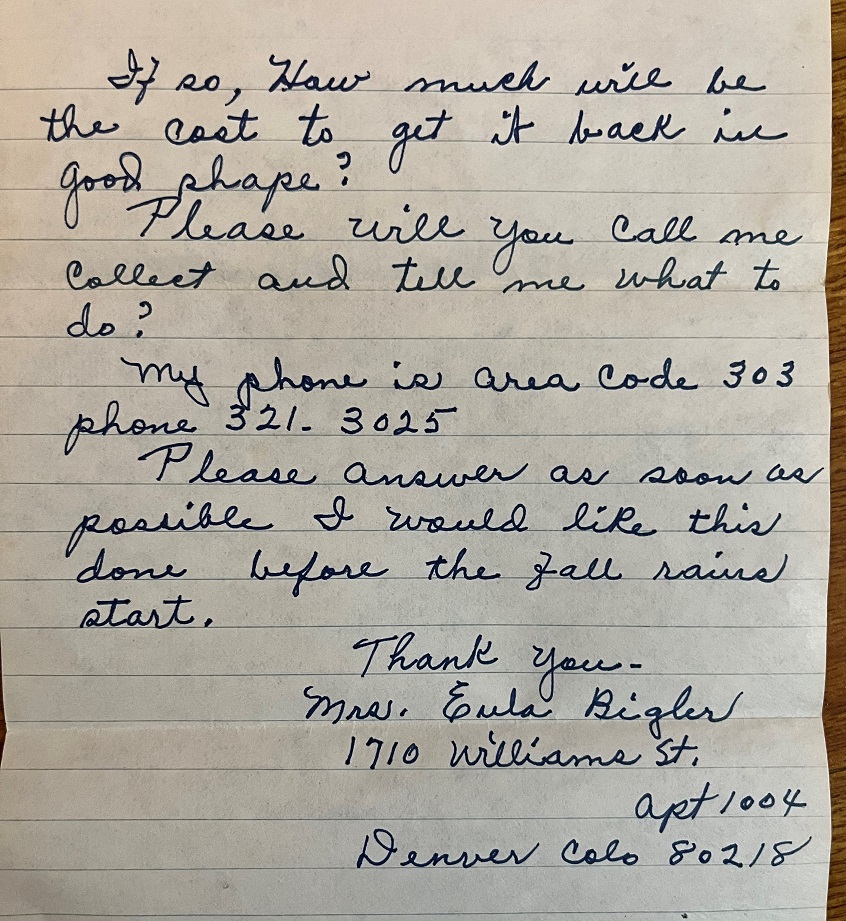 If so, How much will be
the cost to get it back in
good shape?
Please will you call me
collect and tell me what to
do?
My phone is area code 303
phone 321-3025
Please answer as soon as
possible I would like this
done before the fall rains
start.
Thank you-
Mrs. Eula Bigler
1710 Williams St.
apt 1004
Denver Colo 80218